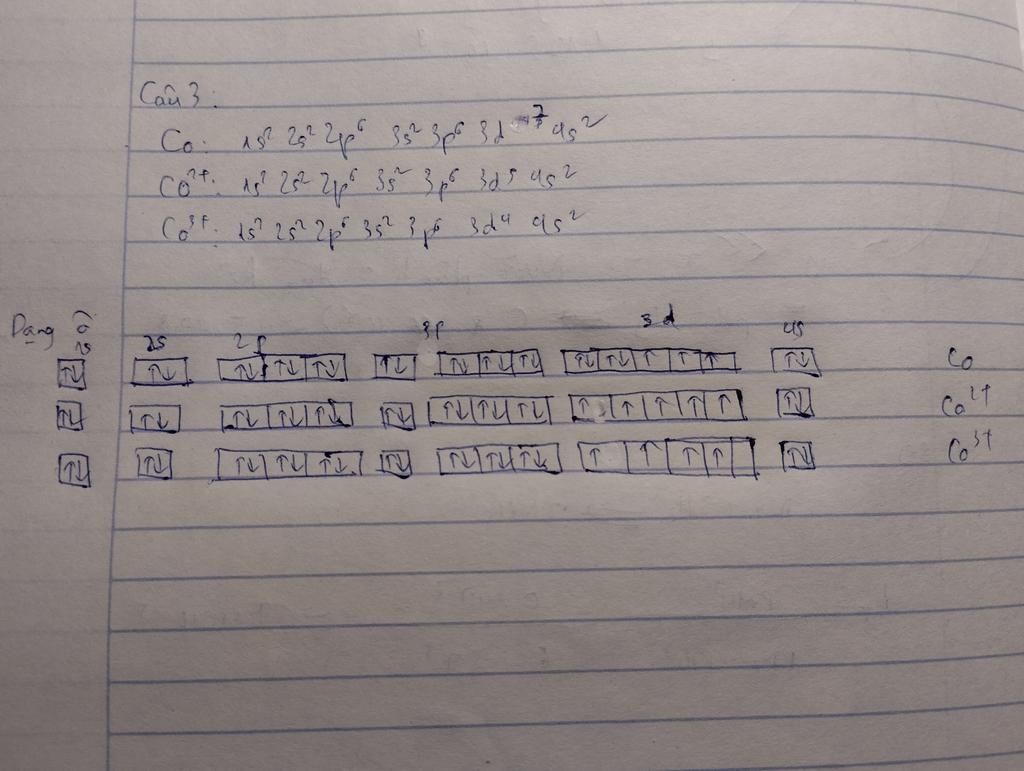 Câu 3:
Co: 1s² 2s² 2p⁶ 3s² 3p⁶ 3d⁷ 4s²
Co²⁺: 1s² 2s² 2p⁶ 3s² 3p⁶ 3d⁵ 4s²
Co³⁺: 1s² 2s² 2p⁶ 3s² 3p⁶ 3d⁴ 4s²
Dạng ô
1s 2s 2p 3p 3d 4s
↑↓ ↑↓ ↑↓ ↑↓ ↑↓ ↑↓ ↑↓ ↑↓ ↑↓ ↑↓ ↑↓ ↑ ↑ ↑ ↑↓ Co
↑↓ ↑↓ ↑↓ ↑↓ ↑↓ ↑↓ ↑↓ ↑↓ ↑↓ ↑ ↑ ↑ ↑ ↑ ↑↓ Co²⁺
↑↓ ↑↓ ↑↓ ↑↓ ↑↓ ↑↓ ↑↓ ↑↓ ↑↓ ↑ ↑ ↑ ↑ ↑↓ Co³⁺